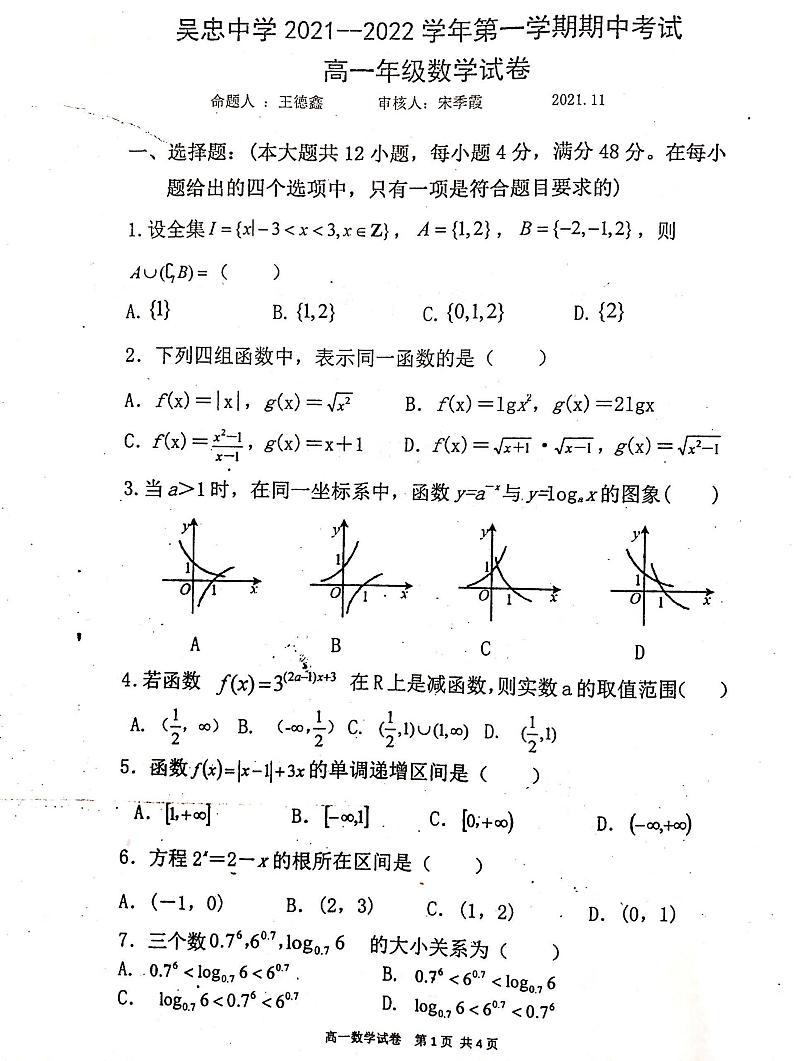 吴忠中学 2021--2022 学年第一学期期中考试
高一年级数学试卷
命题人 ：王德鑫 审核人：宋季霞 2021.11
一、选择题：(本大题共 12 小题，每小题 4 分，满分 48 分。在每小
题给出的四个选项中，只有一项是符合题目要求的)
1. 设全集 I = {x|－3 < x < 3, x ∈ Z}， A = {1,2}， B = {−2,−1,2}，则
A∪(∁_I B) = （ ）
A. {1} B. {1,2} C. {0,1,2} D. {2}
2. 下列四组函数中，表示同一函数的是（ ）
A. f(x)＝|x|，g(x)＝√x² B. f(x)＝lgx²，g(x)＝2lgx
C. f(x)＝(x²−1)/(x−1)，g(x)＝x＋1 D. f(x)＝√x+1 • √x−1，g(x)＝√x²−1
3. 当 a＞1 时，在同一坐标系中，函数 y=a⁻ˣ 与 y=logₐx 的图象( )
y 1 O 1 x y 1 O 1 x y 1 O 1 x y 1 O 1 x
A B C D
4. 若函数 f(x)=3^((2a−1)x+3) 在 R 上是减函数，则实数 a 的取值范围( )
A. (1/2, ∞) B. (-∞, 1/2) C. (1/2,1)∪(1,∞) D. (1/2,1)
5. 函数 f(x)=|x−1|+3x 的单调递增区间是（ ）
A. [1,+∞] B. [−∞,1] C. [0,+∞) D. (−∞,+∞)
6. 方程 2ˣ＝2－x 的根所在区间是（ ）
A. (－1, 0) B. (2, 3) C. (1, 2) D. (0, 1)
7. 三个数 0.7⁶,6^0.7,log₀.₇ 6 的大小关系为（ ）
A. 0.7⁶ < log₀.₇ 6 < 6^0.7 B. 0.7⁶ < 6^0.7 < log₀.₇ 6
C. log₀.₇ 6 < 0.7⁶ < 6^0.7 D. log₀.₇ 6 < 6^0.7 < 0.7⁶
高一数学试卷 第 1 页 共 4 页